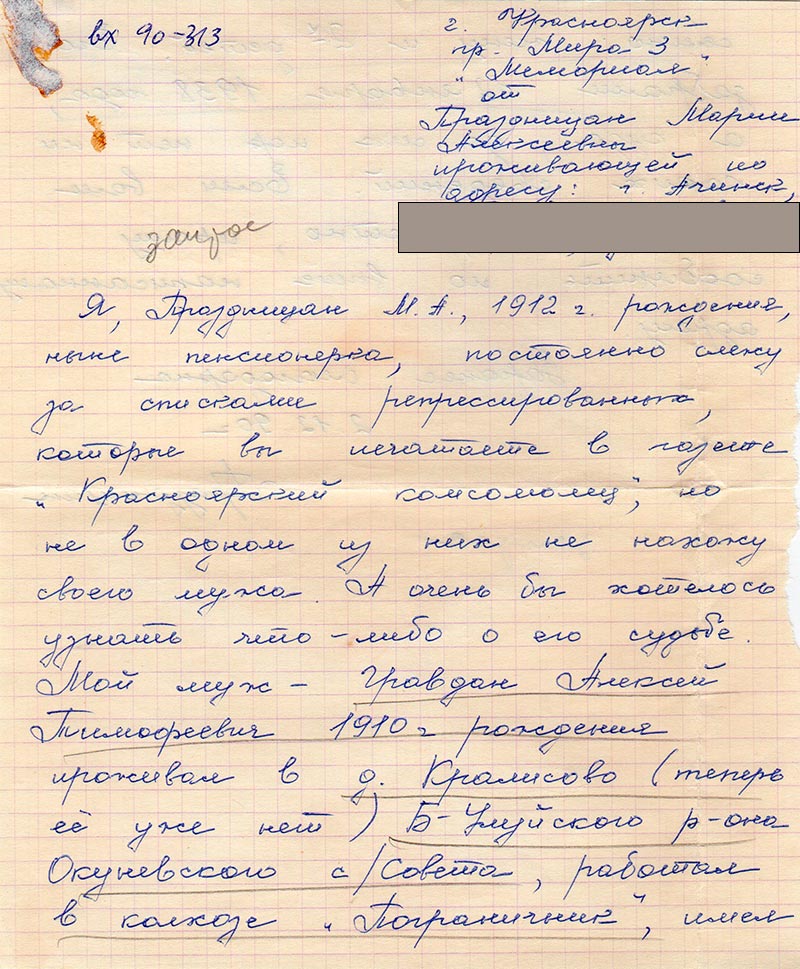 вх 90-313
г. Красноярск
пр. Мира 3
"Мемориал"
от
Праздницан Марии
Алексеевны
проживающей по
адресу: г. Ачинск,
запрос
Я, Праздницан М.А., 1912 г. рождения,
ныне пенсионерка, постоянно слежу
за списками репрессированных,
которые вы печатаете в газете
"Красноярский комсомолец", но
не в одном из них не нахожу
своего мужа. А очень бы хотелось
узнать что-либо о его судьбе.
Мой муж - Гравдан Алексей
Тимофеевич 1910 г рождения
проживал в д. Кралисово (теперь
её уже нет) Б-Улуйского р-она
Окуневского с/Совета, работал
в колхозе "Пограничник", имел